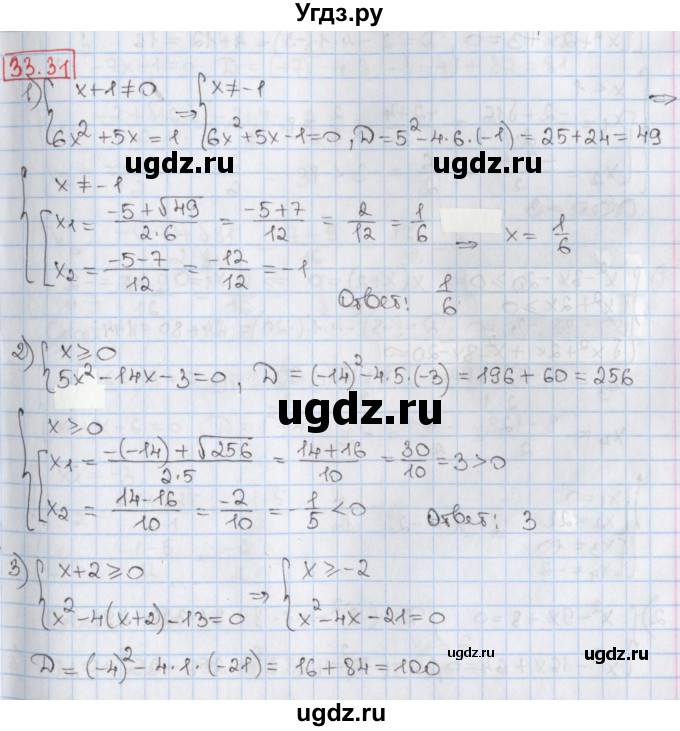 Угдз.ру
33.31
1) { x+1≠0 ⇒ { x≠-1 ⇒
6x²+5x=1 6x²+5x-1=0, D=5²-4·6·(-1)=25+24=49
ugdz.ru ugdz.ru
{ x≠-1
[ x1 = (-5+√49)/(2·6) = (-5+7)/12 = 2/12 = 1/6 ⇒ x = 1/6
x2 = (-5-7)/12 = -12/12 = -1
Ответ: 1/6
2) { x≥0
5x²-14x-3=0, D=(-14)²-4·5·(-3)=196+60=256
ugdz.ru
{ x≥0
[ x1 = (-(-14)+√256)/(2·5) = (14+16)/10 = 30/10 = 3>0
x2 = (14-16)/10 = -2/10 = -1/5 <0
Ответ: 3
ugdz.ru
3) { x+2≥0 ⇒ { x≥-2
x²-4(x+2)-13=0 x²-4x-21=0
D=(-4)²-4·1·(-21)=16+84=100
ugdz.ru ugdz.ru
ugdz.ru